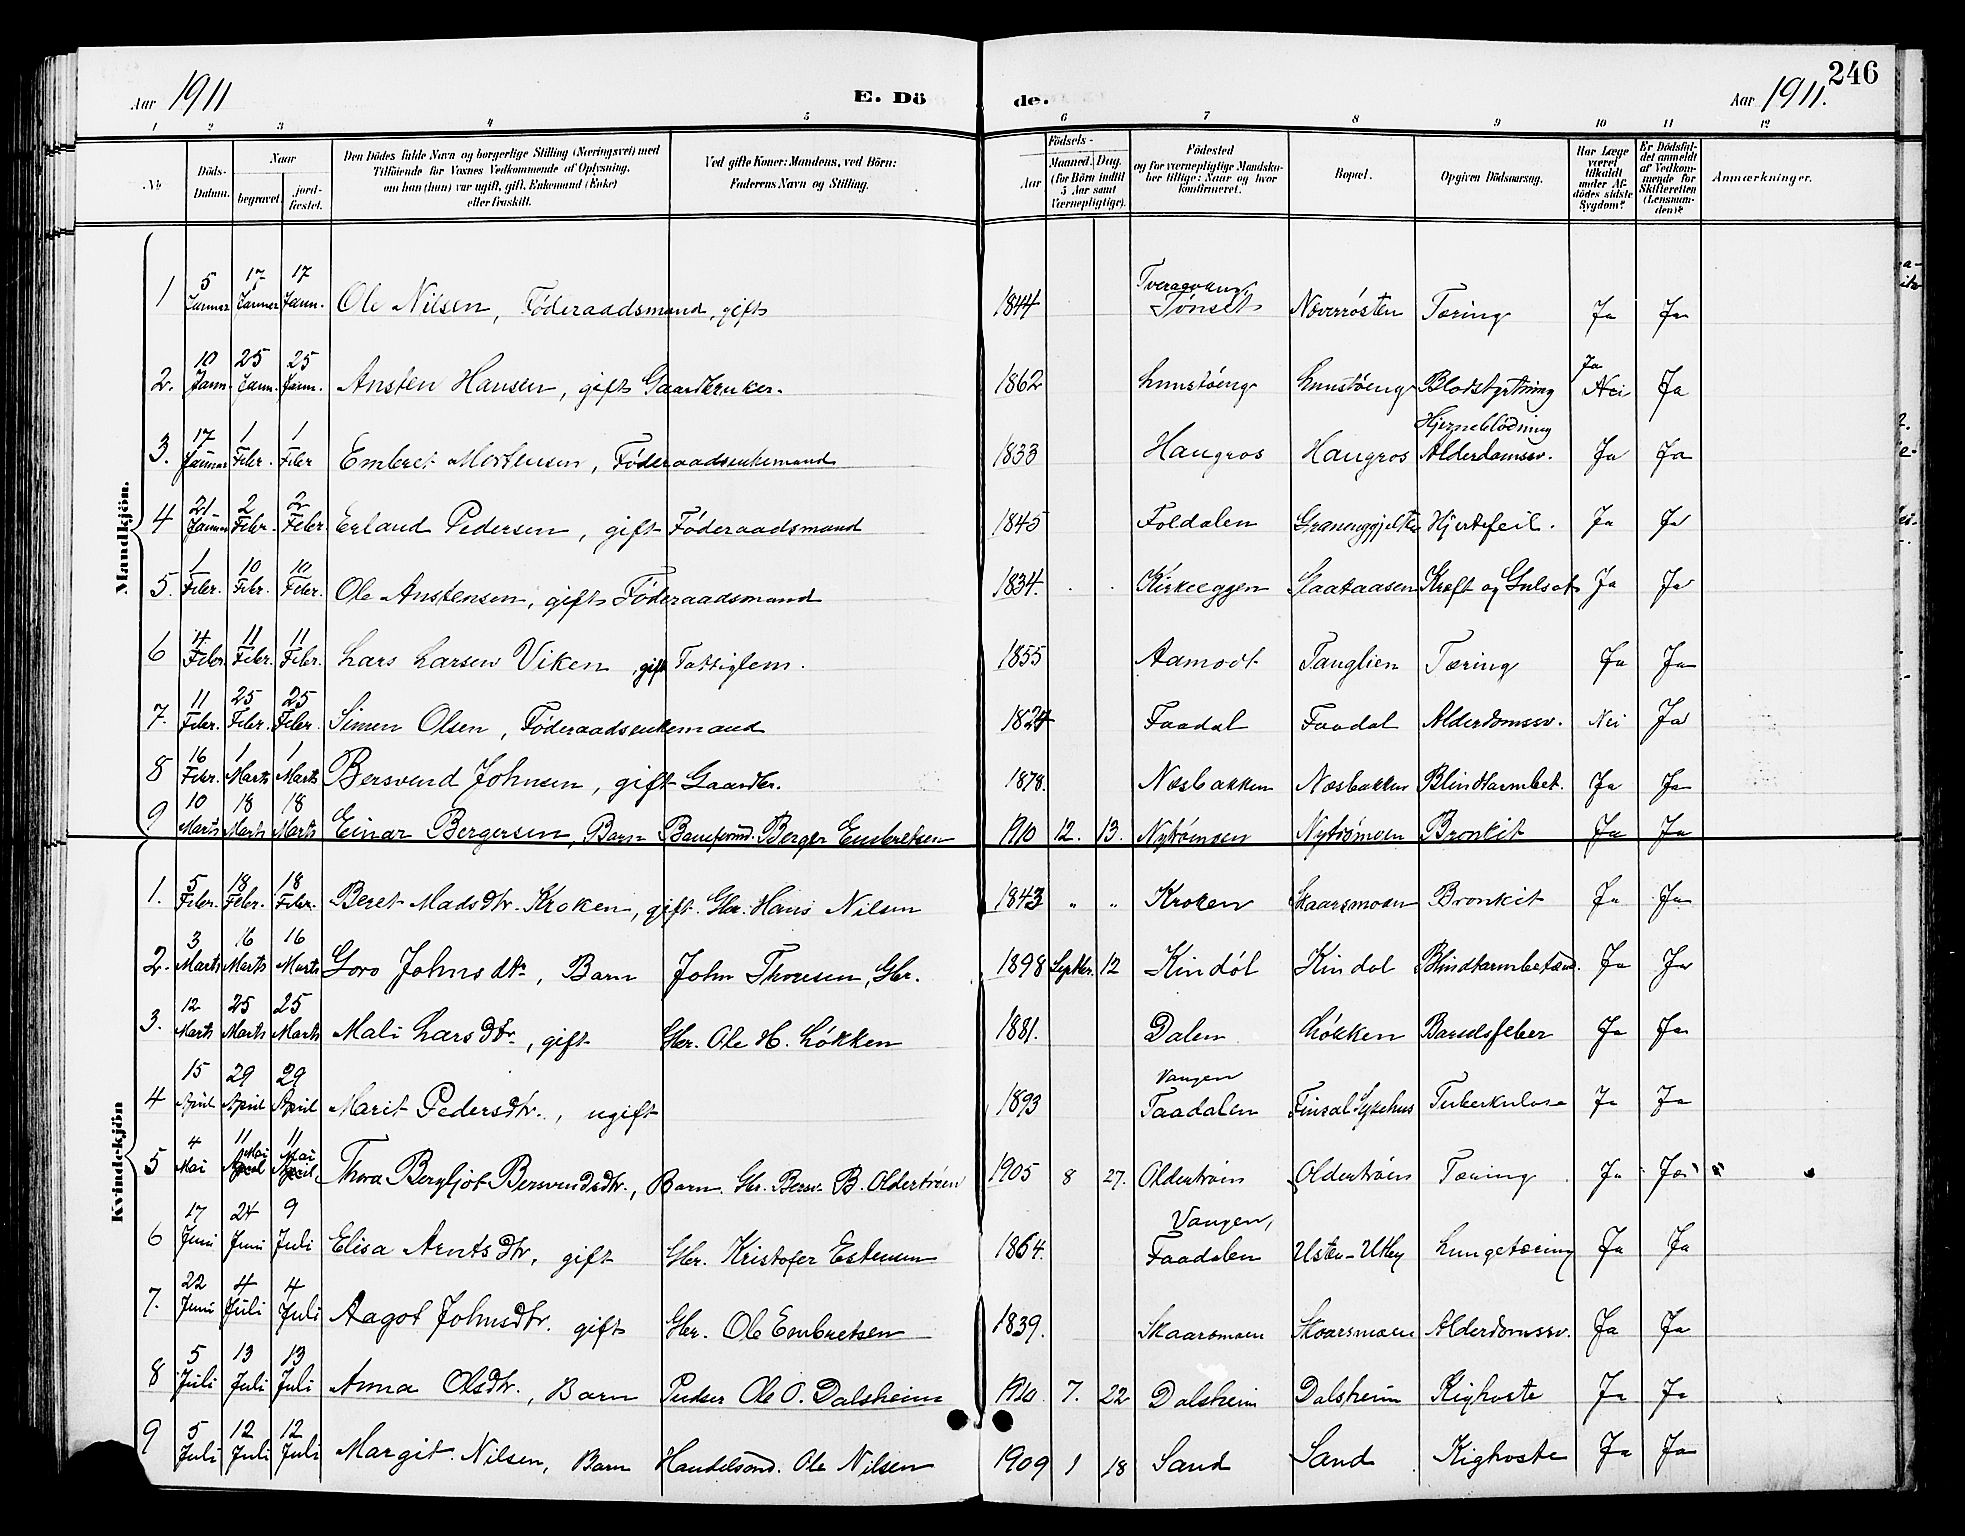 246
Aar 1911 E. Döde. Aar 1911.
1 2 3 4 5 6 7 8 9 10 11 12
No. Döds-Datum. Naar begravet. jordfæstet. Den Dödes fulde Navn og borgerlige Stilling (Næringsvei) med Tilföiende for Voxnes Vedkommende af Oplysning, om han (hun) var ugift, gift, Enkemand (Enke) eller fraskilt. Ved gifte Koner: Mandens, ved Börn: Faderens Navn og Stilling. Födsels- Aar Maaned. Dag. (for Börn indtil 5 Aar samt Værnepligtige). Födested og for værnepligtige Mandskaber tillige: Naar og hvor konfirmeret. Bopæl. Opgiven Dödsaarsag. Har Læge været tilkaldt under Afdödes sidste Sygdom? Er Dödsfaldet anmeldt af Vedkommende for Skifteretten (Lensmanden)? Anmærkninger.
Mandkjön.
1 5 Januar 17 Januar 17 Jann. Ole Nilsen, Föderaadsmand, gift 1844 Tönset Næverrösten Tæring Ja Ja
2. 10 Jann. 25 Jann. 25 Jann. Ansten Hansen, gift Gaardbruker. 1862 Lunstöeng Lunstöeng Blodstyrtning Ja Nei Ja
3. 17 Januar 1 Febr. 1 Febr Embret Mortensen, Föderaadsenkemand 1833 Haugros Haugros Hjerneblödning Alderdomssv. Ja Ja
4 21 Januar 2 Febr. 2 Febr. Erland Pedersen, gift Föderaadsmand 1845 Foldalen Hjertefeil. Ja Ja
5. 1 Febr. 10 Febr. 10 Febr. Ole Anstensen, gift Föderaadsmand 1834. Kirkeeggen Slaataasen Kræft og Gulsot Ja Ja
6 4 Febr 11 Febr. 11 Febr. Lars Larsen Viken, gift Fattiglem. 1855 Aamodt Tanglien Tæring Ja Ja
7. 11 Febr. 25 Febr. 25 Febr. Simen Olsen, Föderaadsenkemand 1824 Faadal Faadal Alderdomssv. Nei Ja
8 16 Febr. 1 Marts 1 Marts Bersvend Johnsen, gift Gaardbr. 1878. Næsbakken Næsbakken Blindtarmbet. Ja Ja
9 10 Marts 18 Marts 18 Marts Einar Bergersen, Barn Berger Embretsen 1910 12. 13. Nytrömoen Nytrömoen Bronkit Ja Ja
Kvindekjön
1. 5 Febr. 18 Febr. 18 Febr. Beret Madsdtr. Kroken, gift. Gbr. Hans Nilsen 1843 " " Kroken Skaarsmoen Bronkit Ja Ja
2. 3 Marts 16 Marts 16 Marts Goro Johnsdtr, Barn John Thoresen, Gbr. 1898 Septbr. 12 Kindöl Kindöl Blindtarmbetænd. Ja Ja
3. 12 Marts 25 Marts 25 Marts Mali Larsdtr., gift Gbr. Ole H. Lökken 1881. Dalen Lökken Barselsfeber Ja Ja
4 15 April 29 April 29 April Marit Pedersdtr., ugift 1893 Vangen Faadalen Finsal Sykehus Tuberkulose Ja Ja
5 4 Mai 11 Mai April 11 Mai April Thora Bergljot Bersvendsdtr., Barn. Gbr. Bersv. B. Oldertröen 1905 8 27. Oldertröen Oldertröen Tæring Ja Ja
6 17 Juni 24 Juni 9 Juli Elisa Arntsdtr, gift Gbr. Kristofer Estensen 1864. Vangen, Faadalen Usten-Utby Lungetæring Ja Ja
7. 22 Juni 4 Juli 4 Juli Aagot Johnsdtr. gift Gbr. Ole Embretsen 1839. Skaarsmoen Skaarsmoen Alderdomssv. Ja Ja
8 5 Juli 13 Juli 13 Juli Anna Olsdtr., Barn Pudser Ole O. Dalsheim 1910. 7. 22 Dalsheim Dalsheim Kighoste Ja Ja
9 5 Juli 12 Juli 12 Juli Margit Nilsen, Barn Handelsmd. Ole Nilsen 1909 1 18 Sand Sand Kighoste Ja Ja